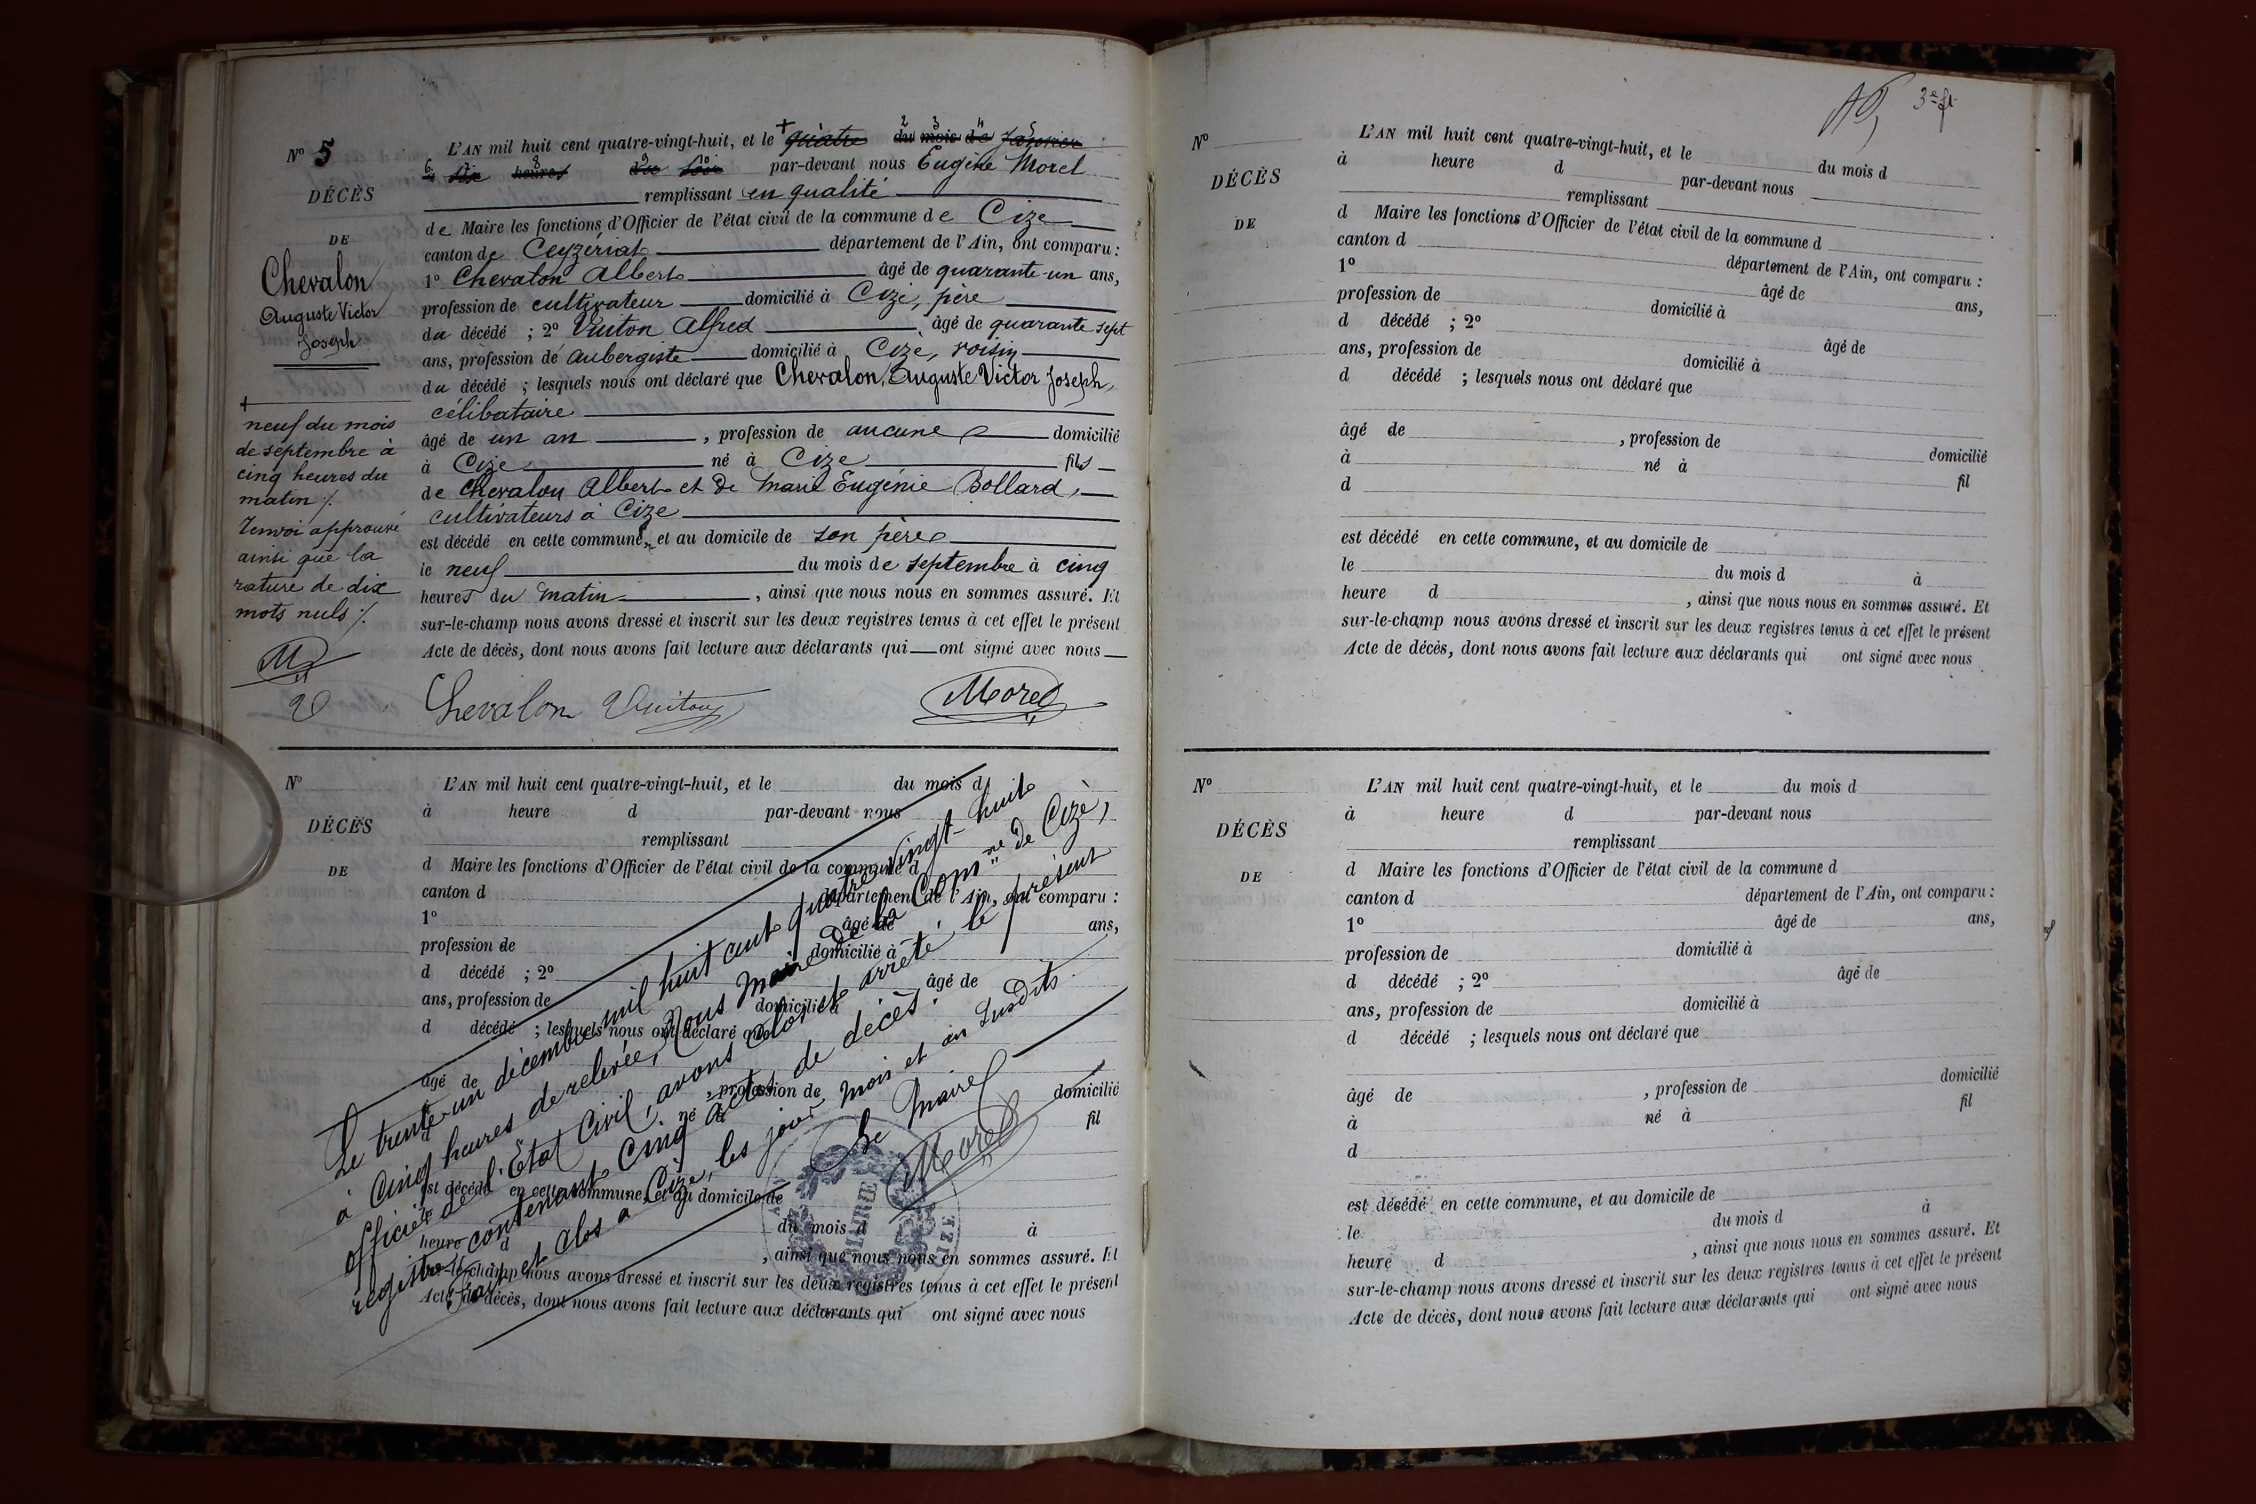 Nº 5
DÉCÈS
DE
Chevalon
Auguste Victor
Joseph
+
neuf du mois
de septembre à
cinq heures du
matin /.
Renvoi approuvé
ainsi que la
rature de dix
mots nuls /.
M
L'AN mil huit cent quatre-vingt-huit, et le + quatre du mois de Janvier
à six heures du soir par-devant nous Eugène Morel
remplissant en qualité
de Maire les fonctions d'Officier de l'état civil de la commune de Cize
canton de Ceyzériat département de l'Ain, ont comparu :
1º Chevalon Albert âgé de quarante-un ans,
profession de cultivateur domicilié à Cize, père
du décédé ; 2º Vuiton Alfred âgé de quarante sept
ans, profession de aubergiste domicilié à Cize, voisin
du décédé ; lesquels nous ont déclaré que Chevalon, Auguste Victor Joseph,
célibataire
âgé de un an , profession de aucune domicilié
à Cize né à Cize fils
de Chevalon Albert et de Marie Eugénie Bollard,
cultivateurs à Cize
est décédé en cette commune, et au domicile de son père
le neuf du mois de septembre à cinq
heures du matin , ainsi que nous nous en sommes assuré. Et
sur-le-champ nous avons dressé et inscrit sur les deux registres tenus à cet effet le présent
Acte de décès, dont nous avons fait lecture aux déclarants qui ont signé avec nous
Chevalon Vuiton Morel
Nº
DÉCÈS
DE
L'AN mil huit cent quatre-vingt-huit, et le du mois d
à heure d par-devant nous
remplissant
d Maire les fonctions d'Officier de l'état civil de la commune d
canton d département de l'Ain, ont comparu :
1º âgé de ans,
profession de domicilié à
d décédé ; 2º âgé de
ans, profession de domicilié à
d décédé ; lesquels nous ont déclaré que
âgé de , profession de domicilié
à né à fil
d
est décédé en cette commune, et au domicile de
le du mois d à
heure d , ainsi que nous nous en sommes assuré. Et
sur-le-champ nous avons dressé et inscrit sur les deux registres tenus à cet effet le présent
Acte de décès, dont nous avons fait lecture aux déclarants qui ont signé avec nous
Le trente-un décembre mil huit cent quatre vingt-huit
à cinq heures de relevée, Nous Maire de la Comne de Cize,
officier de l'Etat Civil, avons clos et arrêté le présent
registre contenant cinq actes de décès.
Fait et clos à Cize, les jour, mois et an susdits.
Le Maire
Morel
MAIRIE
CIZE
3e ft
Nº
DÉCÈS
DE
L'AN mil huit cent quatre-vingt-huit, et le du mois d
à heure d par-devant nous
remplissant
d Maire les fonctions d'Officier de l'état civil de la commune d
canton d département de l'Ain, ont comparu :
1º âgé de ans,
profession de domicilié à
d décédé ; 2º âgé de
ans, profession de domicilié à
d décédé ; lesquels nous ont déclaré que
âgé de , profession de domicilié
à né à
d fil
est décédé en cette commune, et au domicile de
le du mois d à
heure d , ainsi que nous nous en sommes assuré. Et
sur-le-champ nous avons dressé et inscrit sur les deux registres tenus à cet effet le présent
Acte de décès, dont nous avons fait lecture aux déclarants qui ont signé avec nous
Nº
DÉCÈS
DE
L'AN mil huit cent quatre-vingt-huit, et le du mois d
à heure d par-devant nous
remplissant
d Maire les fonctions d'Officier de l'état civil de la commune d
canton d département de l'Ain, ont comparu :
1º âgé de ans,
profession de domicilié à
d décédé ; 2º âgé de
ans, profession de domicilié à
d décédé ; lesquels nous ont déclaré que
âgé de , profession de domicilié
à né à fil
d
est décédé en cette commune, et au domicile de
le du mois d à
heure d , ainsi que nous nous en sommes assuré. Et
sur-le-champ nous avons dressé et inscrit sur les deux registres tenus à cet effet le présent
Acte de décès, dont nous avons fait lecture aux déclarants qui ont signé avec nous